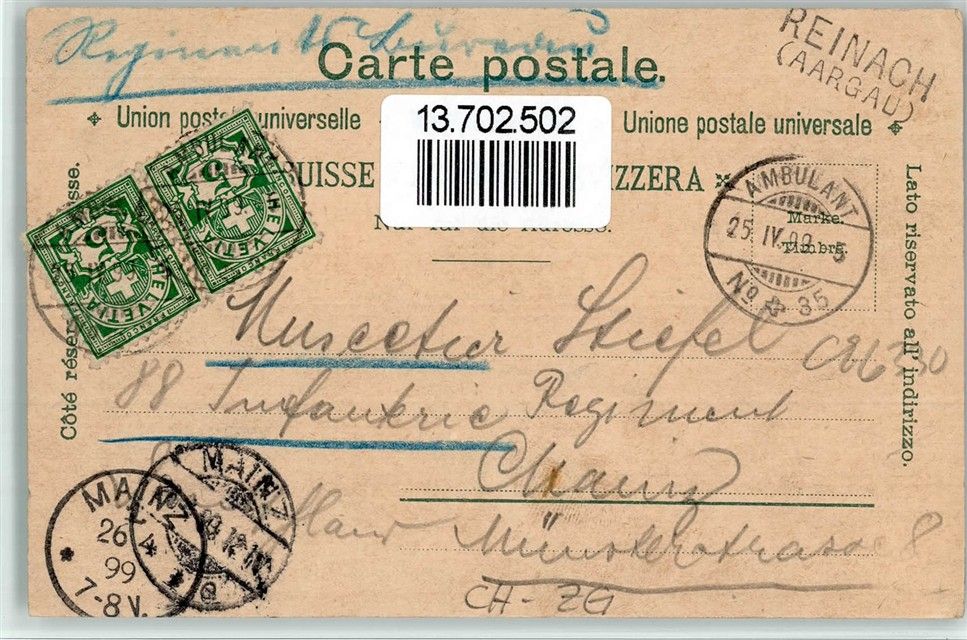 Regiments bureau
REINACH
(AARGAU)
Carte postale.
Union postale universelle
Unione postale universale
13.702.502
SUISSE
IZZERA
Nur für die Adresse.
Côté réser
sse.
Lato riservato all' indirizzo.
HELVETIA
HELVETIA
AMBULANT
25 IV.99 5
No 35
Marke.
Timbre.
Muscetier Stiefel
CH6330
88 Infantrie Regiment
Mainz
Münsterstrasse 8
MAINZ
26
4
99
7-8 V.
MAINZ
CH-ZG